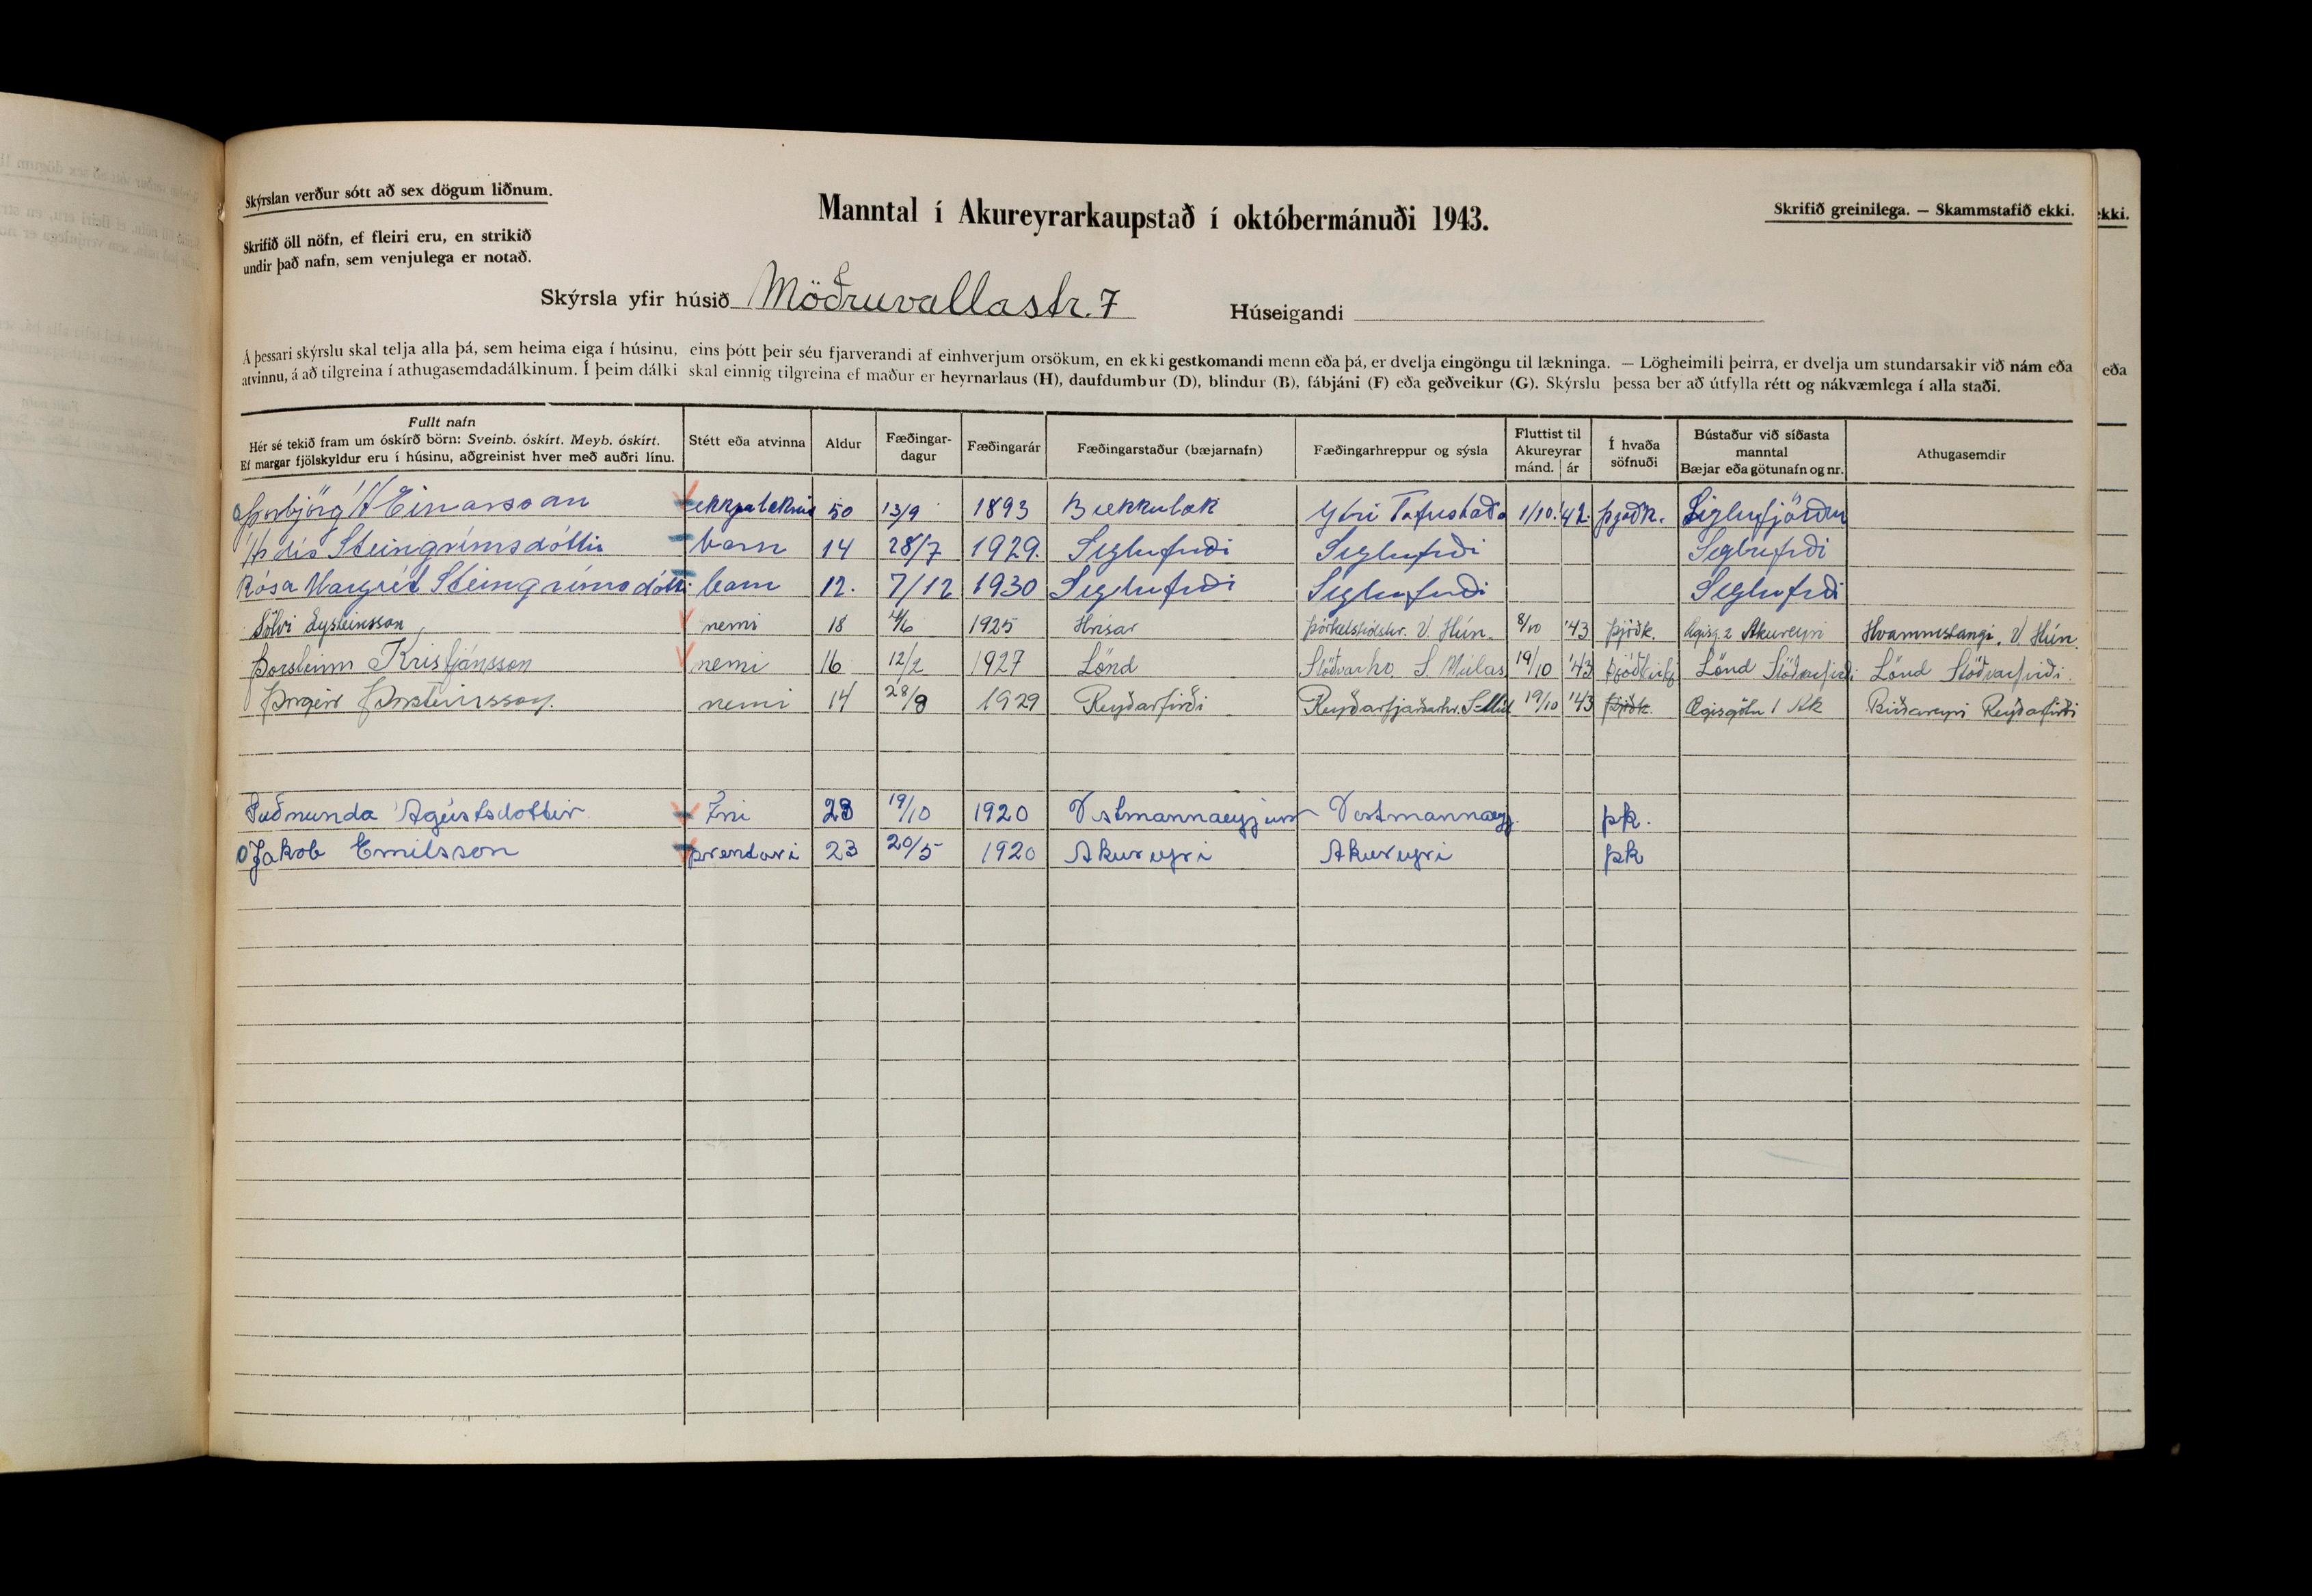 Skýrslan verður sótt að sex dögum liðnum.
Manntal í Akureyrarkaupstað í októbermánuði 1943.
Skrifið greinilega. — Skammstafið ekki.
ekki.
Skrifið öll nöfn, ef fleiri eru, en strikið
undir það nafn, sem venjulega er notað.
Skýrsla yfir húsið Möðruvallastr. 7 Húseigandi
Á þessari skýrslu skal telja alla þá, sem heima eiga í húsinu, eins þótt þeir séu fjarverandi af einhverjum orsökum, en ekki gestkomandi menn eða þá, er dvelja eingöngu til lækninga. — Lögheimili þeirra, er dvelja um stundarsakir við nám eða
eða
atvinnu, á að tilgreina í athugasemdadálkinum. Í þeim dálki skal einnig tilgreina ef maður er heyrnarlaus (H), daufdumbur (D), blindur (B), fábjáni (F) eða geðveikur (G). Skýrslu þessa ber að útfylla rétt og nákvæmlega í alla staði.
Fullt nafn
Hér sé tekið fram um óskírð börn: Sveinb. óskírt. Meyb. óskírt.
Ef margar fjölskyldur eru í húsinu, aðgreinist hver með auðri línu.
Stétt eða atvinna
Aldur
Fæðingar-
dagur
Fæðingarár
Fæðingarstaður (bæjarnafn)
Fæðingarhreppur og sýsla
Fluttist til
Akureyrar
mánd. ár
Í hvaða
söfnuði
Bústaður við síðasta
manntal
Bæjar eða götunafn og nr.
Athugasemdir
Þorbjörg Einarsson 50 13/9 1893 Brekkulæk Ytri 1/10. 42. þjóðk. Siglufjörður
Steingrímsdóttir barn 14 28/7 1929. Siglufirði Siglufirði Siglufirði
Rósa Margrét Steingrímsdóttir barn 12. 7/12 1930 Siglufirði Siglufirði Siglufirði
Sölvi Eysteinsson nemi 18 1925 Hrísar V. Hún. 8/10 '43 þjóðk. Ægisg. 2 Akureyri Hvammstangi, V. Hún.
Þorsteinn Kristjánsson nemi 16 12/2 1927 Lönd Stöðvarhr. S. Múlas 19/10 '43 Lönd Stöðvarfirði Lönd Stöðvarfirði.
Þorgeir Þorsteinsson. nemi 14 28/8 1929 Reyðarfirði Reyðarfjarðarhr. S-Múl 19/10 '43 þjóðk. Ægisgötu 1 Ak Búðareyri Reyðarfirði
Guðmunda Ágústsdóttir frú 23 19/10 1920 Vestmannaeyjum Vestmannaeyj. þk.
Jakob Emilsson prentari 23 20/5 1920 Akureyri Akureyri þk